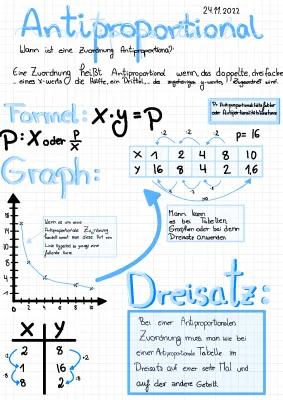 24.11.2022
Antiproportional
Wann ist eine Zuordnung Antiproportional?
Eine Zuordnung heißt Antiproportional wenn, das doppelte, dreifache
... eines x-werts die Hälfte, ein Drittel... des y-werts, Zugeordnet wird.
Formel: x·y=P
P ist Antiproportionalitätsfaktor
oder Antiproportionalitätskonstante
P:x oder P/x
p= 16
·2 ·2 ·2
X 1 2 4 8 10
Y 16 8 4 2 1,6
Graph:
Wenn es um eine
Antiproportionale Zuordnung
handelt nennt man diese Art von
Linie Hyperbel
eine fallende
Kurve.
Mann kann
es bei Tabellen,
Graphen oder bei dem
Dreisatz anwenden
2 4 6 8 10
Dreisatz:
X Y
2 8
1 16
8 2
Bei einer Antiproportionalen
Zuordnung muss man wie bei
einer Antiproportionale Tabelle im
Dreisatz auf einer seite Mal und
auf der andere Geteilt